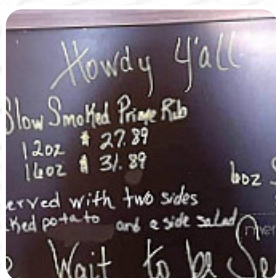 Howdy y'all
Slow Smoked Prime Rib
12oz $ 27.89
16oz $ 31.89
6oz S
erved with two sides
ked potato and a side salad
Wait to be Se